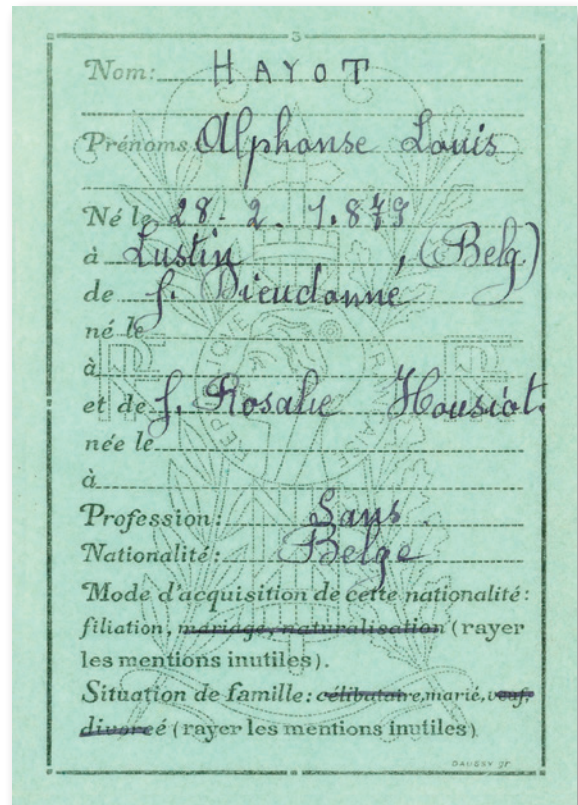 3
Nom: HAYOT
Prénoms Alphonse Louis
Né le 28-2. 1.879
à Lustin, (Belg)
de f. Dieudonné
né le
à
et de f. Rosalie Housiot.
née le
à
Profession: Sans.
Nationalité: Belge
Mode d'acquisition de cette nationalité:
filiation, mariage, naturalisation (rayer
les mentions inutiles).
Situation de famille: célibataire, marié, veuf,
divorcé (rayer les mentions inutiles)
RÉPUBLIQUE FRANÇAISE
RF
RF
DAUSSY gr